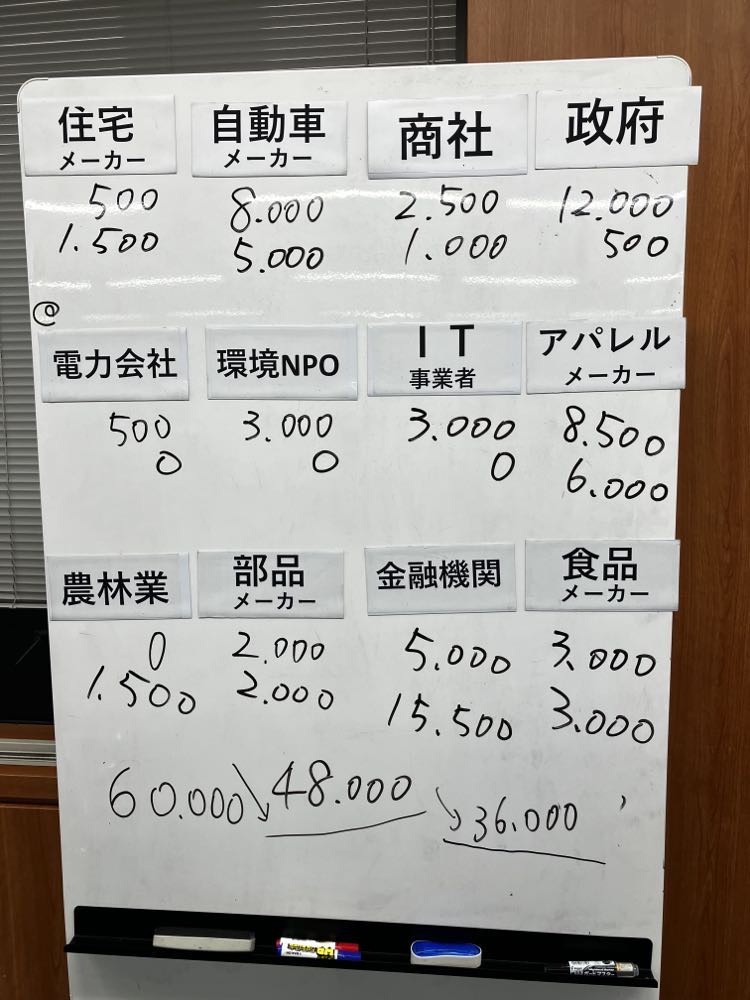 住宅
メーカー
500
1.500
自動車
メーカー
8.000
5.000
商社
2.500
1.000
政府
12.000
500
@
電力会社
500
0
環境NPO
3.000
0
IT
事業者
3.000
0
アパレル
メーカー
8.500
6.000
農林業
0
1.500
部品
メーカー
2.000
2.000
金融機関
5.000
15.500
食品
メーカー
3.000
3.000
60.000↘48.000↘36.000